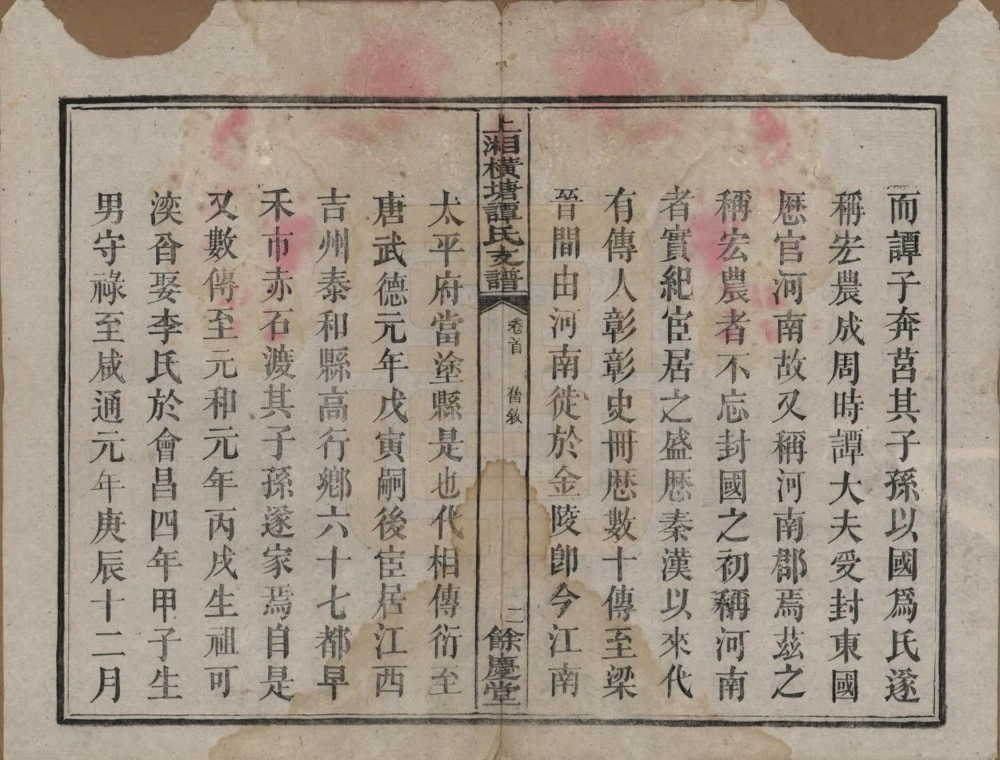 而譚子奔莒其子孫以國爲氏遂
稱宏農成周時譚大夫受封東國
歷官河南故又稱河南郡焉茲之
稱宏農者不忘封國之初稱河南
者實紀宦居之盛歷秦漢以來代
有傳人彰彰史冊歷數十傳至梁
晉間由河南徙於金陵卽今江南
上湘橫塘譚氏支譜
卷首 舊敘
二 餘慶堂
太平府當塗縣是也代相傳衍至
唐武德元年戊寅嗣後宦居江西
吉州泰和縣高行鄉六十七都早
禾市赤石渡其子孫遂家焉自是
又數傳至元和元年丙戌生祖可
渙酓娶李氏於會昌四年甲子生
男守祿至咸通元年庚辰十二月